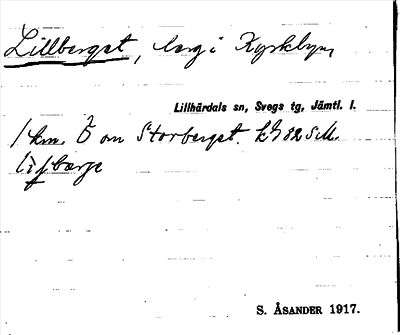 Lillberget, berg i Kyrkbyn,
Lillhärdals sn, Svegs tg, Jämtl. l.
1 km. Ö om Storberget.
S. ÅSANDER 1917.